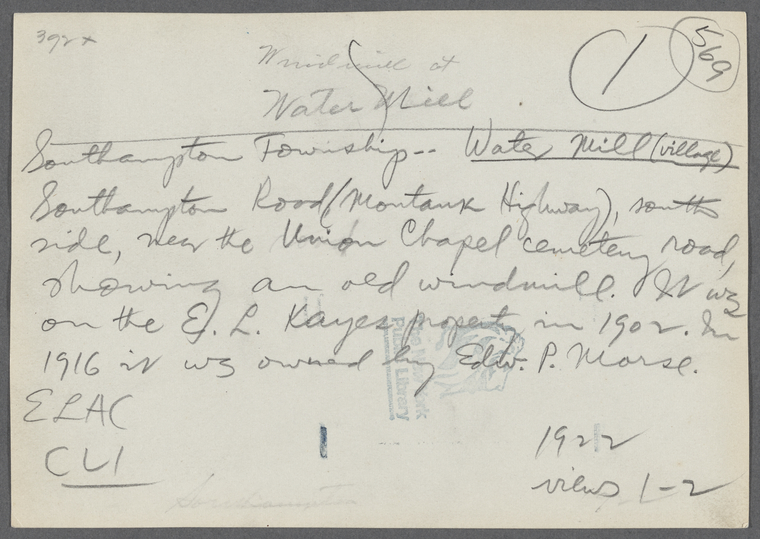 392x
1
569
Windmill at
Water Mill
Southampton Township -- Water Mill (village)
Southampton Road (Montauk Highway), south
side, near the Union Chapel cemetery road,
showing an old windmill. It ws
on the E. L. Kayes propert in 1902. In
1916 it ws owned by Edw. P. Morse.
The New York
Public Library
ELAC
CLI
1922
views 1-2
Southampton